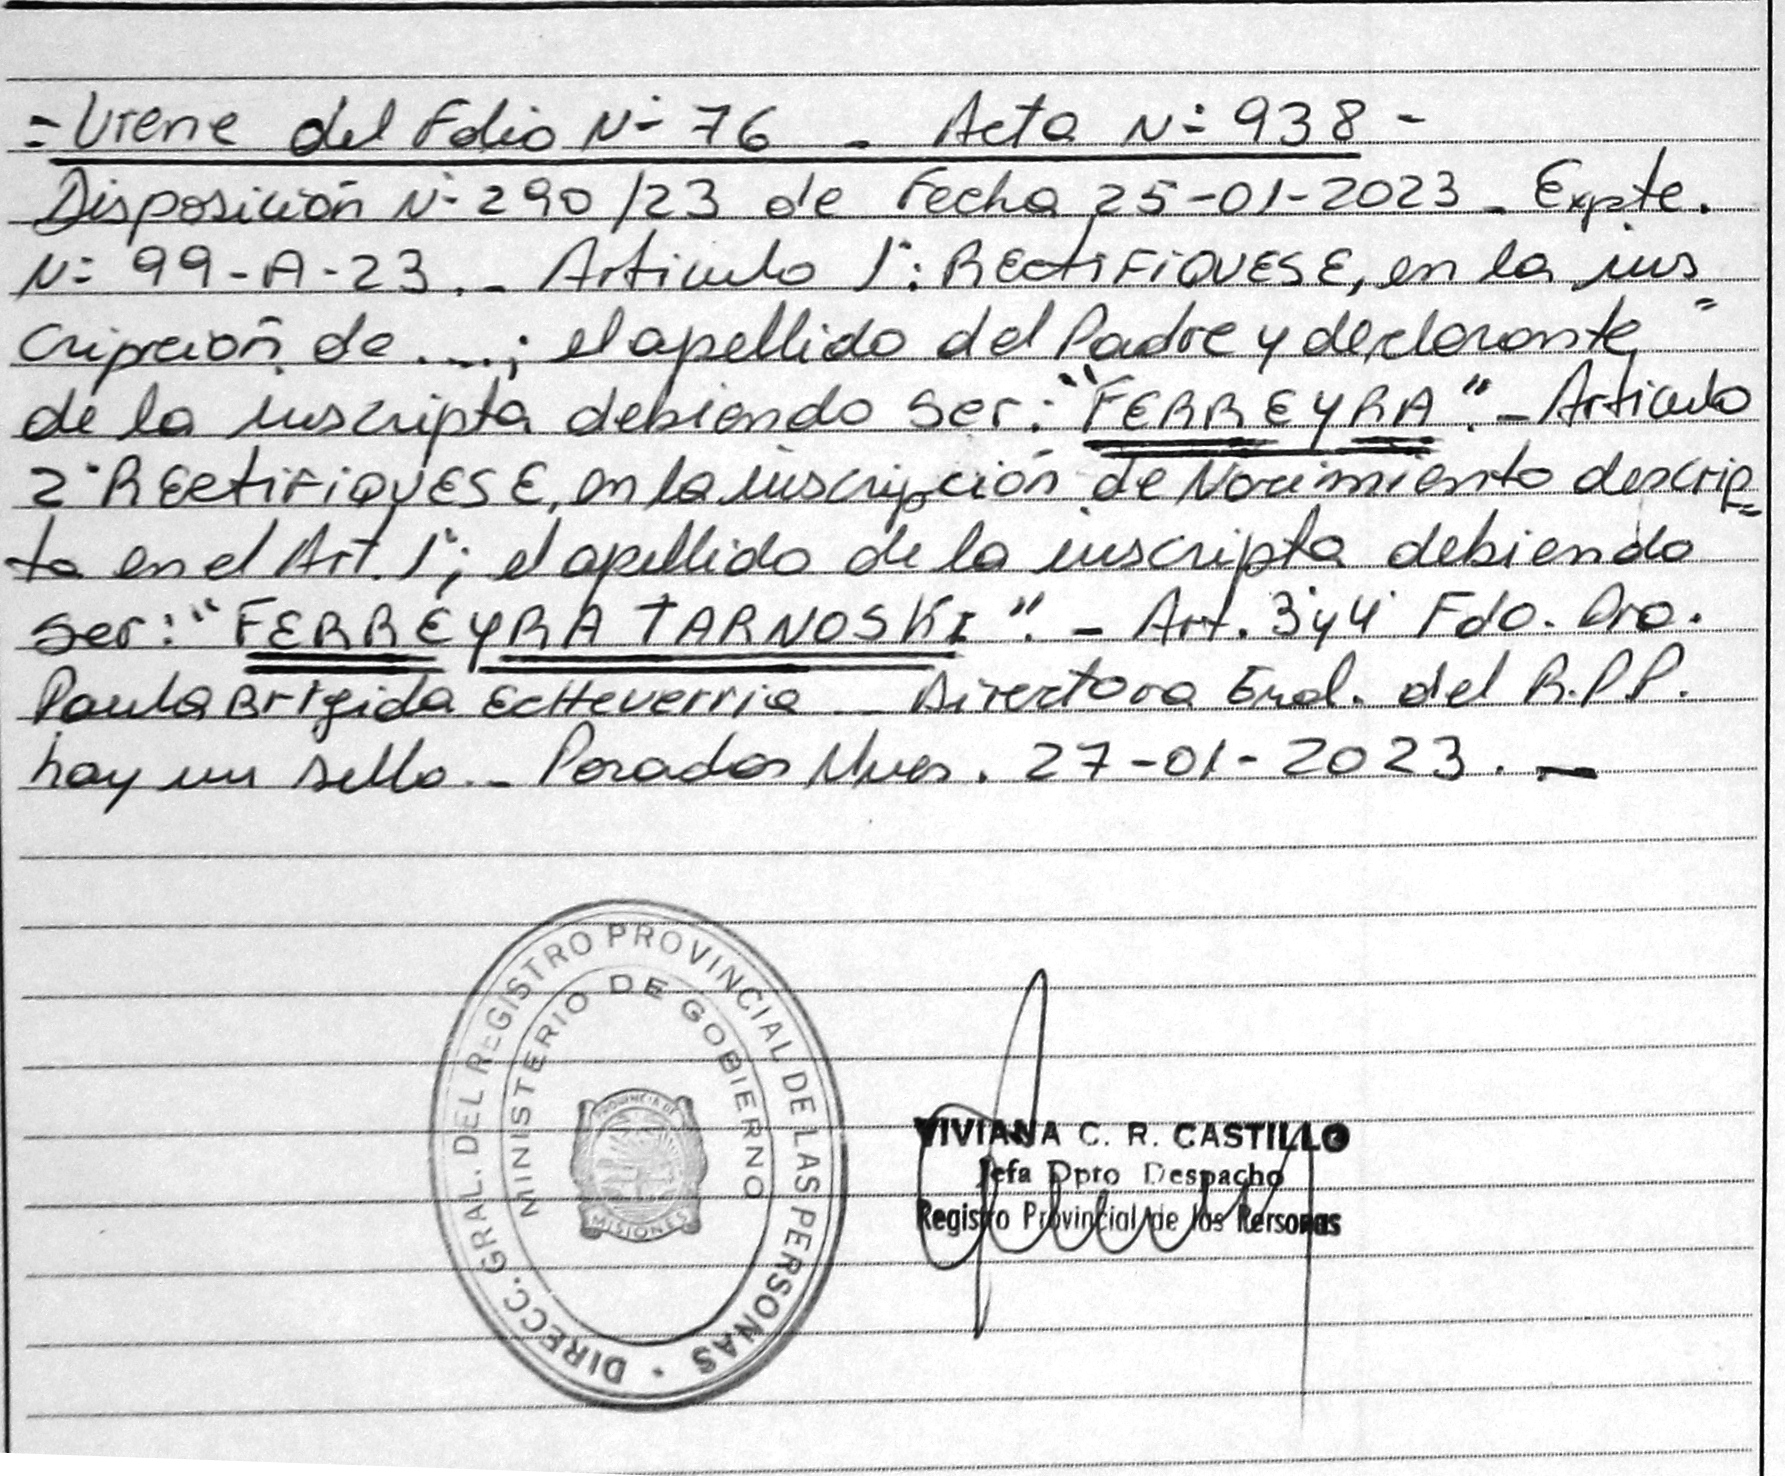 = Viene del Folio Nº 76 - Acta Nº 938 -
Disposición Nº 290/23 de Fecha 25-01-2023 - Expte.
Nº 99-A-23.- Articulo 1º: RECtiFiQUESE, en la ins
cripción de ...; el apellido del Padre y declarante,
de la inscripta debiendo ser: "FERREYRA".- Articulo
2º RECtiFiQUESE, en la inscripción de Nacimiento descrip=
ta en el Art. 1º; el apellido de la inscripta debiendo
ser: "FERREYRA TARNOSKI".- Art. 3º y 4º Fdo. Dra.
Paula Brigida Echeverria - Directora Gral. del R.P.P.
hay un sello.- Posadas Mnes. 27-01-2023.-
DIRECC. GRAL. DEL REGISTRO PROVINCIAL DE LAS PERSONAS
MINISTERIO DE GOBIERNO
PROVINCIA DE
MISIONES
VIVIANA C. R. CASTILLO
Jefa Dpto Despacho
Registro Provincial de las Personas